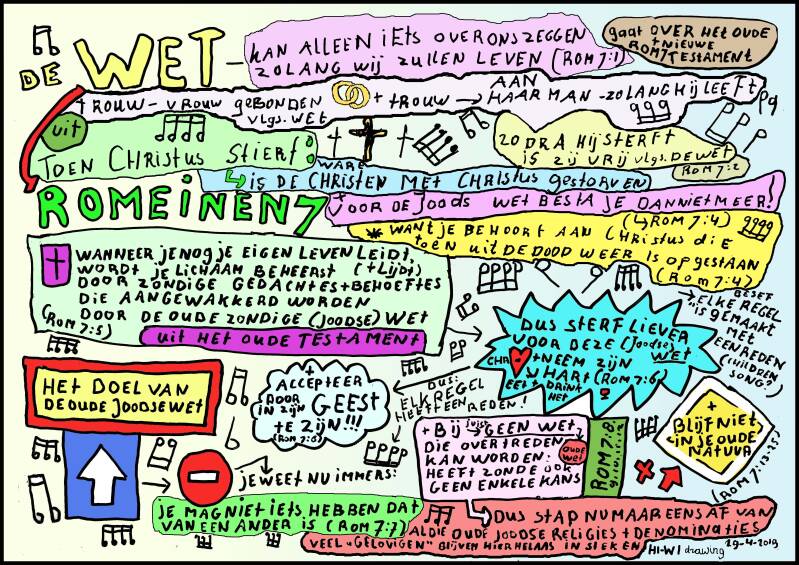 DE WET -
KAN ALLEEN iETS OVER ONS ZEGGEN
ZOLANG Wij ZULLEN LEVEN (ROM 7:1)
gaat OVER HET OUDE
+ NiEUWE
ROM 7 TESTAMENT
tROUW - VROUW gEBONDEN
vlgs. WET
+ tROUW → AAN
HAAR MAN - ZOLANG Hij LEEFT
uit
TOEN CHRiSTUS STiERF:
ZODRA Hij STERFT
iS Zij VRij vlgs. DE WET
(ROM 7:2)
WARE
iS DE CHRiSTEN MET CHRiSTUS gESTORVEN
ROMEiNEN 7
VOOR DE jOODS WET BESTA jE DAN NiET MEER!
(ROM 7:4)
* WANT jE BEHOORT AAN CHRiSTUS DiE
TOEN UiT DE DOOD WEER iS OPgESTAAN
(ROM 7:4)
WANNEER jE NOg jE EiGEN LEVEN LEiDT,
WORDT jE LiCHAAM BEHEERST (+ LijDt)
DOOR ZONDiGE gEDACHTES + BEHOEFTES
DiE AANgEWAKKERD WORDEN
DOOR DE OUDE ZONDiGE (JOODSE) WET
(ROM 7:5)
uit HET OUDE TESTAMENT
BESEF
"ELKE REGEL
iS gEMAAKT
MET
EEN REDEN
(CHiLDREN
SONG?)
DUS STERF LiEVER
VOOR DEZE (joodse)
WET
CHR.
+ NEEM ZijN
HART (ROM 7:6)
EET + DRiNK
HET
HET DOEL VAN
DE OUDE jOODSE WET
+
ACCEPTEER
DOOR
iN ZijN GEEST
TE ZijN!!!
(ROM 7:6)
DUS:
ELK REGEL
HEEFT EEN REDEN!
+
BLijF NiET
iN jE OUDE
NATUUR
(ROM 7:13-25)
+ Bij juist GEEN WET,
DiE OVERTREDEN
KAN WORDEN:
HEEFT ZONDE OOK
GEEN ENKELE KANS
OUDE
WET
ROM 7:8
jE WEET NU iMMERS:
jE MAG NiET iETS HEBBEN DAT
VAN EEN ANDER iS (ROM 7:7)
DUS STAP NU MAAR EENS AF VAN
AL DiE OUDE jOODSE RELiGiES + DENOMiNATiES
VEEL "gELOViGEN" BLijVEN HiER HELAAS iN STEKEN
Hi-Wi drawing
19-4-2019